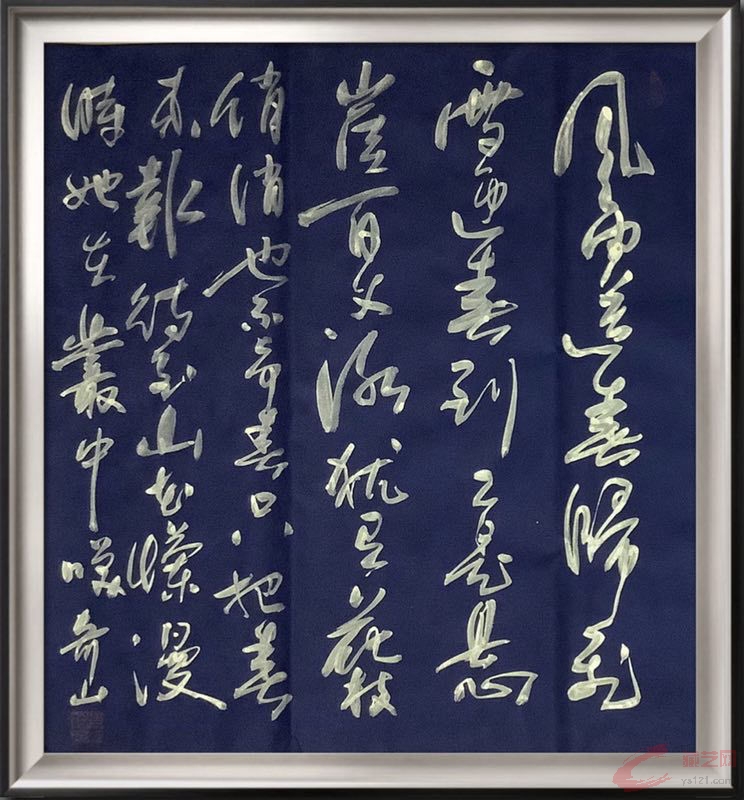 风雨送春歸飛
雪迎春到已是悬
崖百丈冰犹有花枝
俏俏也不争春只把春
来報待到山花爛漫
時她在叢中咲奇山
ys121.com